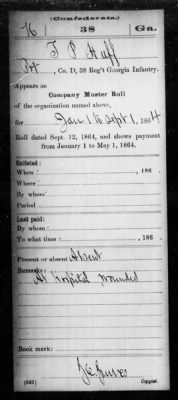 (Confederate.)
H 38 Ga.
T P Huff
Pvt, Co. D, 38 Reg't Georgia Infantry.
Appears on
Company Muster Roll
of the organization named above,
for Jan 1 to Sept 1, 1864
Roll dated Sept. 12, 1864, and shows payment
from January 1 to May 1, 1864.
Enlisted:
When , 186 .
Where
By whom
Period
Last paid:
By whom
To what time , 186 .
Present or absent Absent
Remarks:
At Hospital wounded
Book mark:
(642) Copyist.